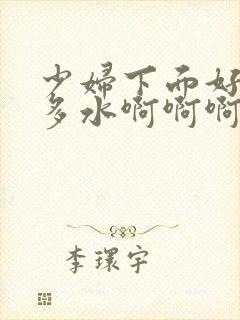 少婦下面好
多水啊啊啊
李環宇